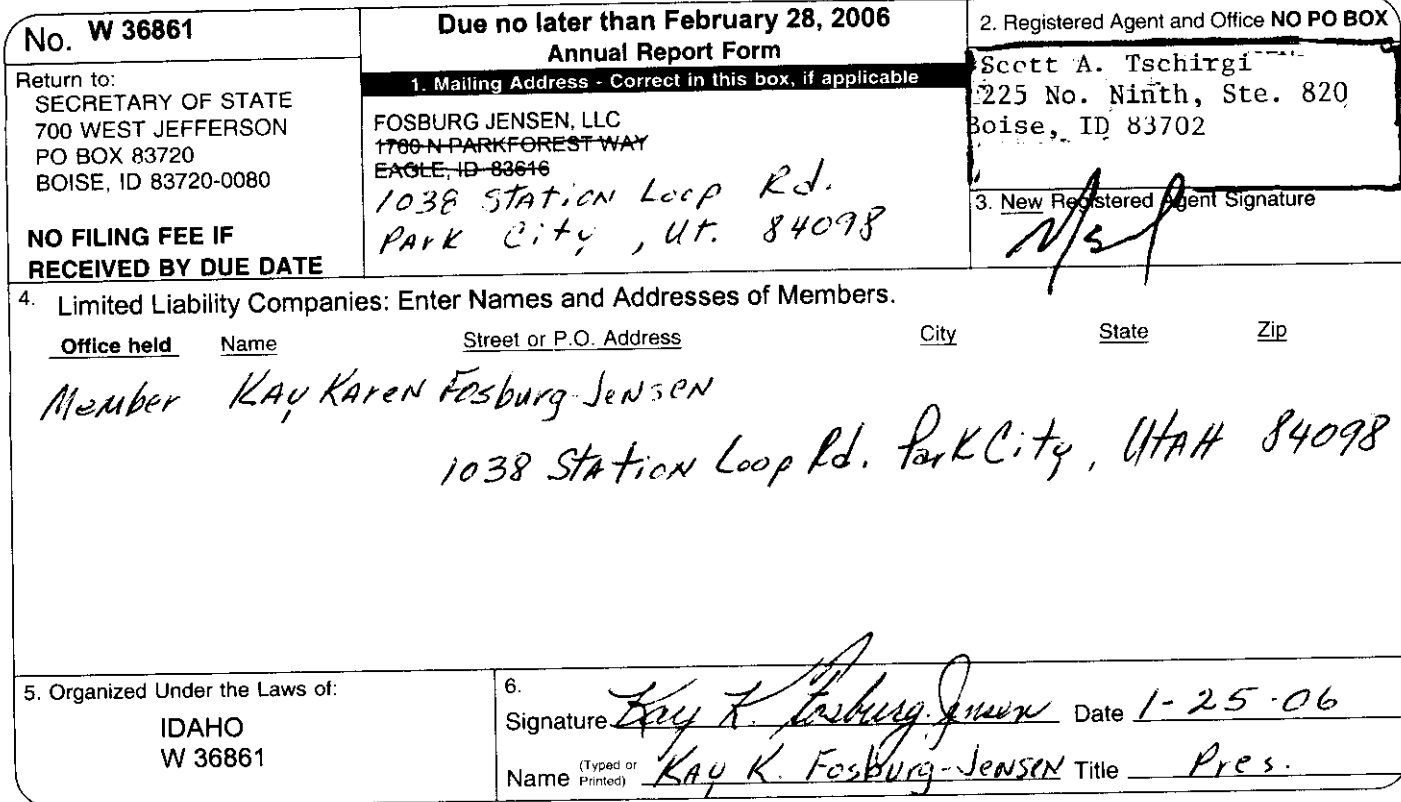 No. W 36861
Return to:
SECRETARY OF STATE
700 WEST JEFFERSON
PO BOX 83720
BOISE, ID 83720-0080
NO FILING FEE IF
RECEIVED BY DUE DATE
Due no later than February 28, 2006
Annual Report Form
1. Mailing Address - Correct in this box, if applicable
FOSBURG JENSEN, LLC
1780 N PARKFOREST WAY
EAGLE, ID 83616
1038 Station Loop Rd.
Park City, Ut. 84098
2. Registered Agent and Office NO PO BOX
Scott A. Tschirgi
225 No. Ninth, Ste. 820
Boise, ID 83702
3. New Registered Agent Signature
4. Limited Liability Companies: Enter Names and Addresses of Members.
Office held Name Street or P.O. Address City State Zip
Member Kay Karen Fosburg-Jensen
1038 Station Loop Rd. Park City, UtAH 84098
5. Organized Under the Laws of:
IDAHO
W 36861
6.
Signature Kay K. Fosburg-Jensen Date 1-25-06
Name (Typed or Printed) Kay K. Fosburg-Jensen Title Pres.